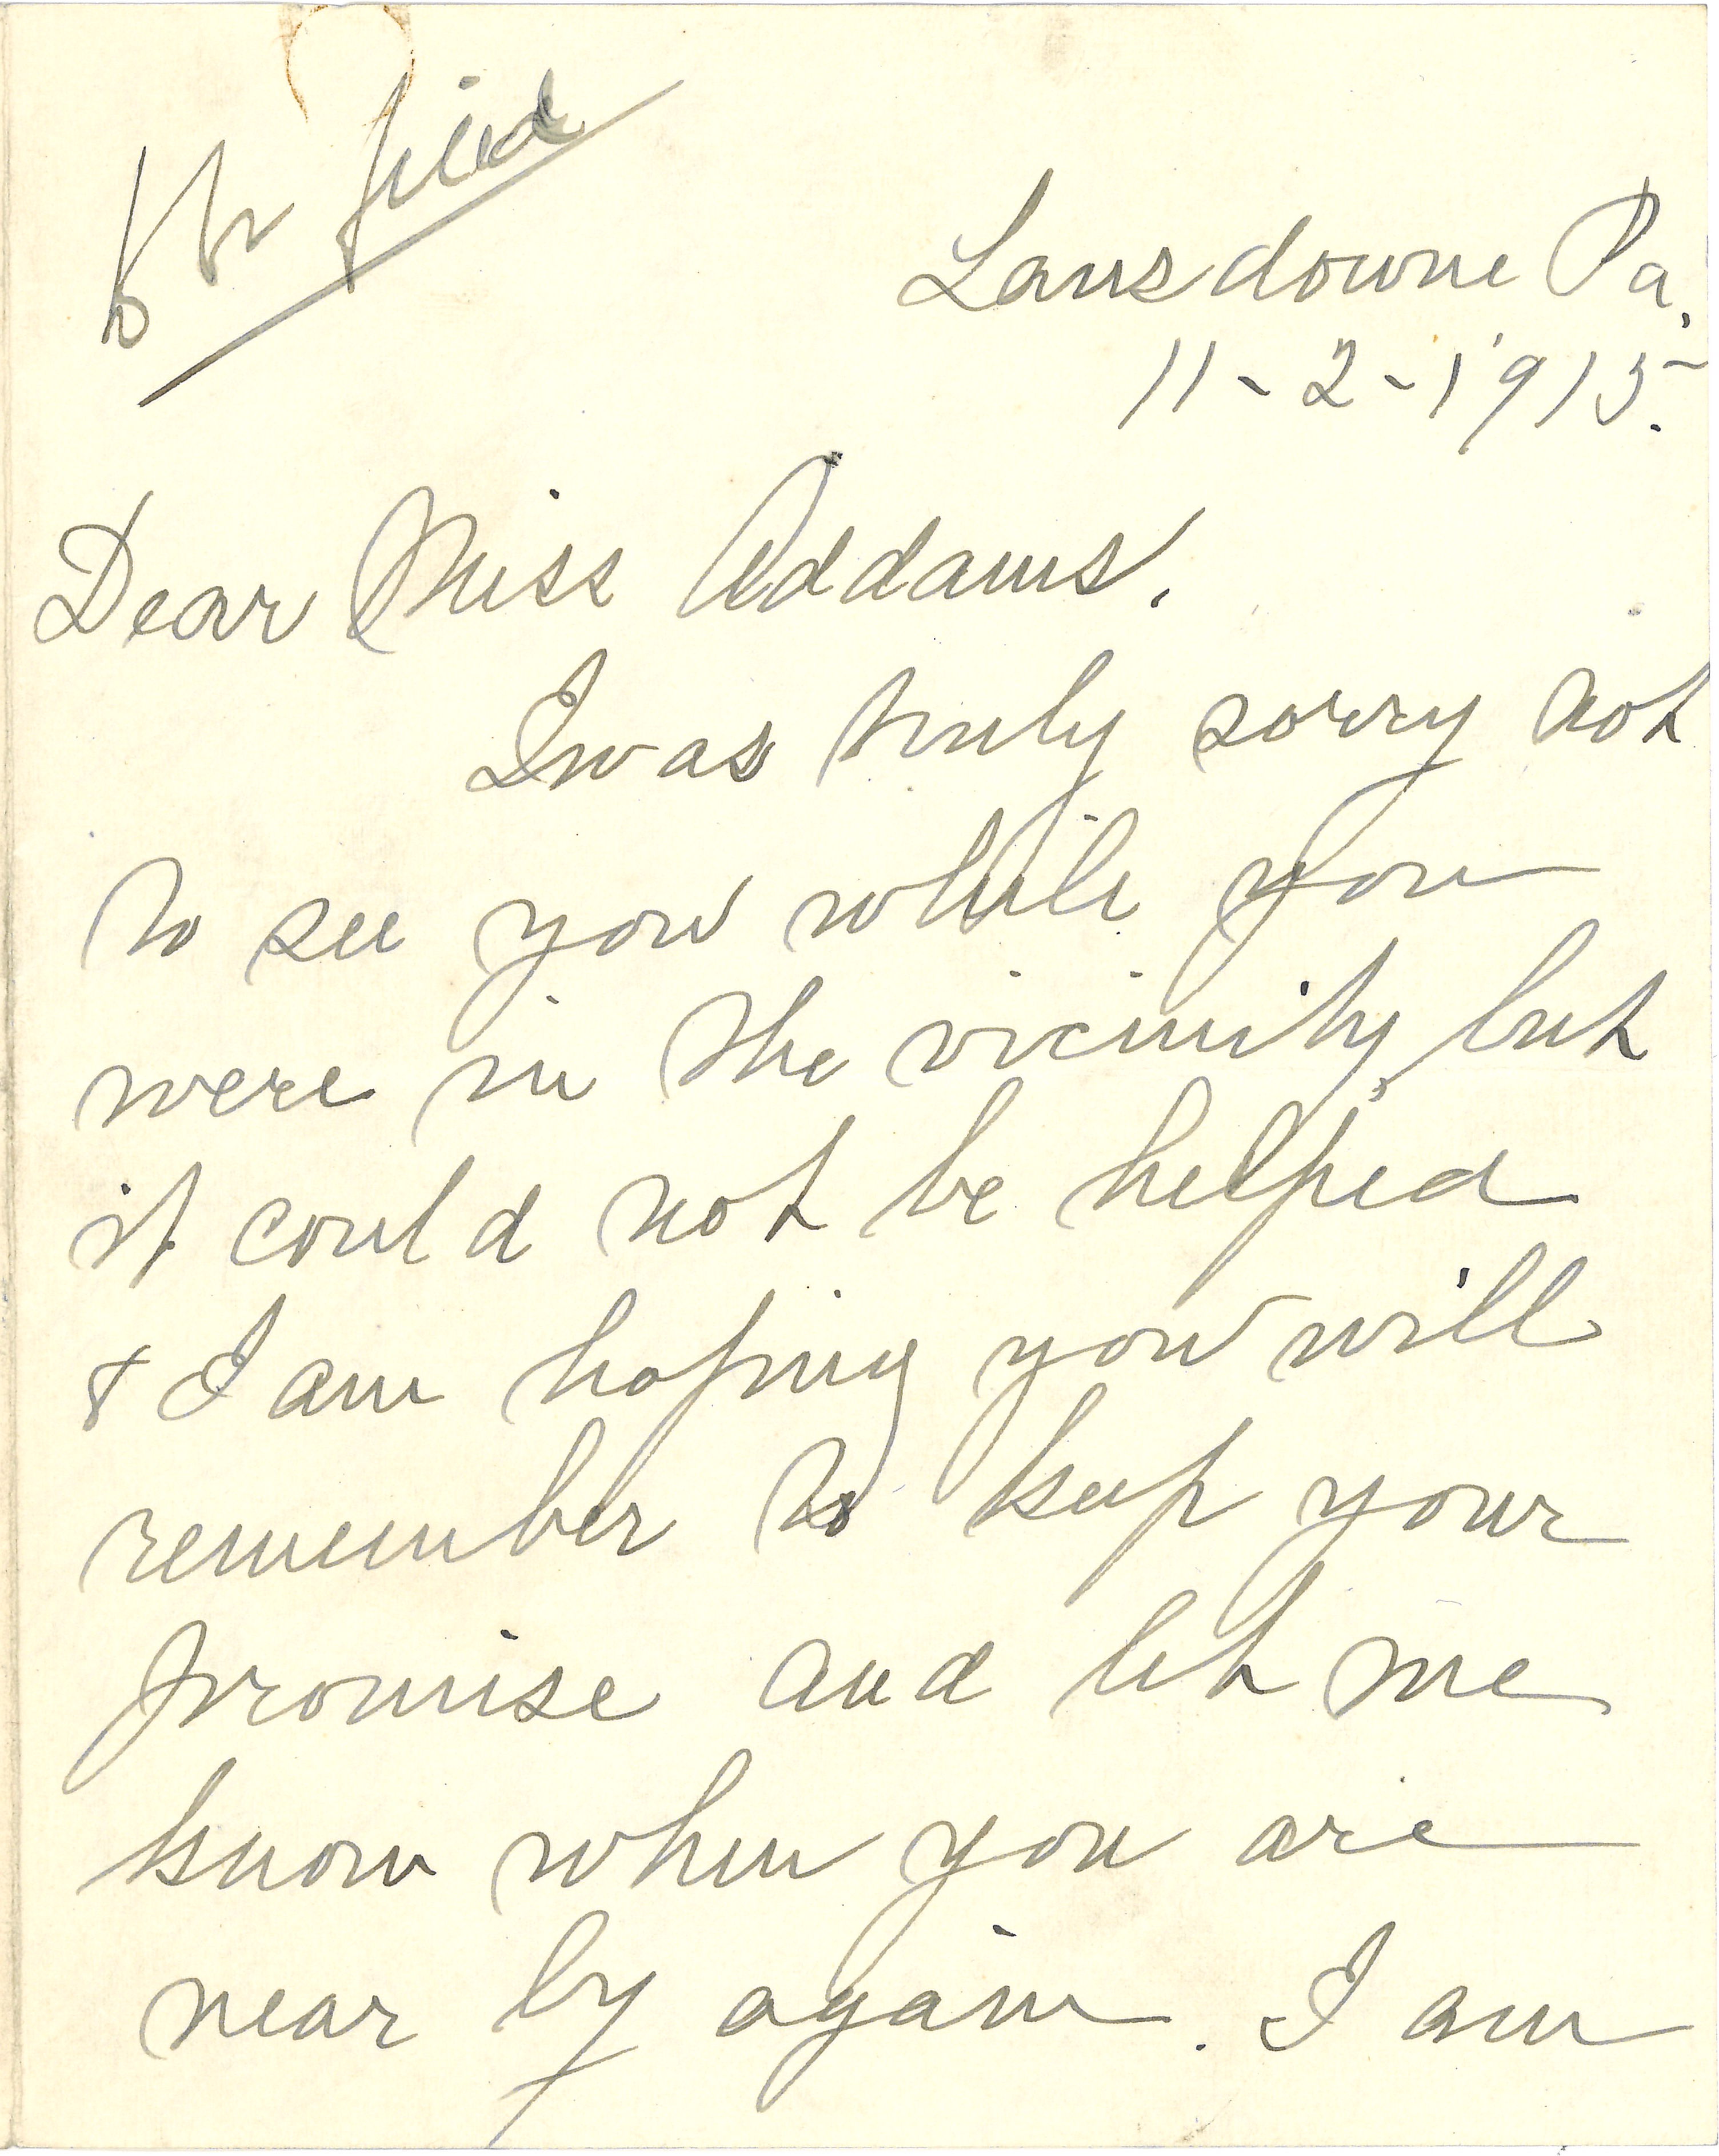 Lansdowne Pa.
11-2-1915.
Dear Miss Addams.
I was truly sorry not
to see you while you
were in the vicinity, but
it could not be helped
& I am hoping you will
remember to keep your
promise and let me
know when you are
near by again. I am